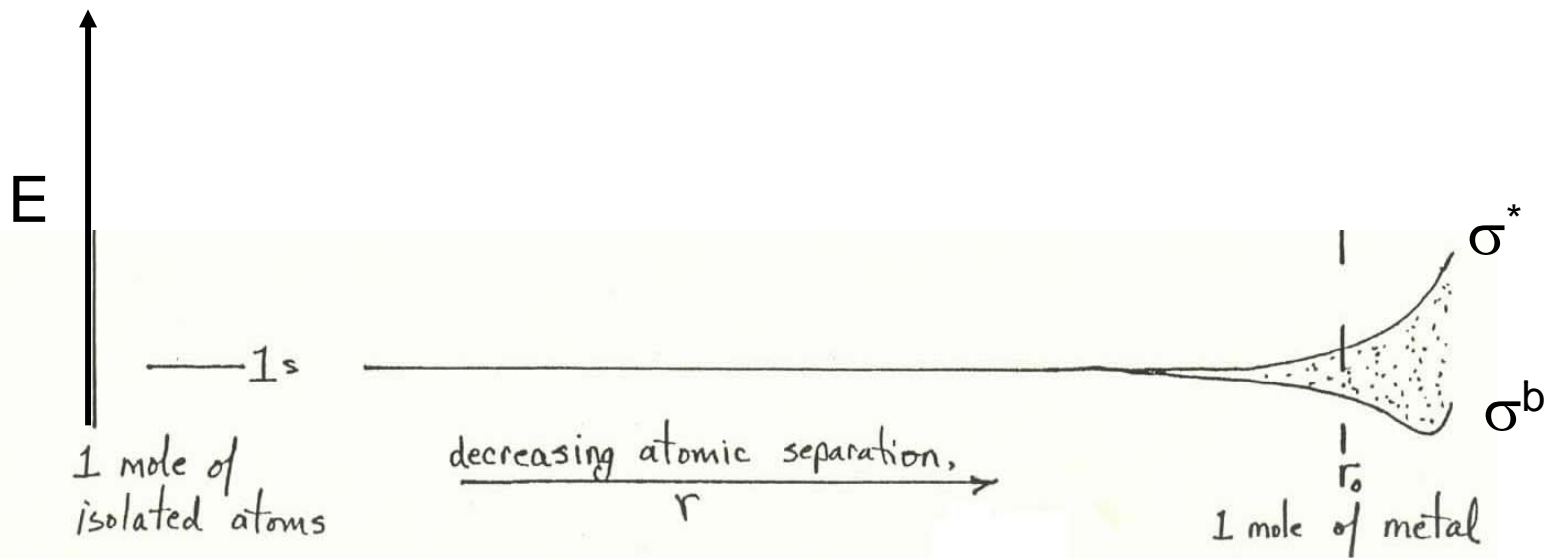 E
σ*
1s
σb
1 mole of
isolated atoms
decreasing atomic separation,
r
r₀
1 mole of metal